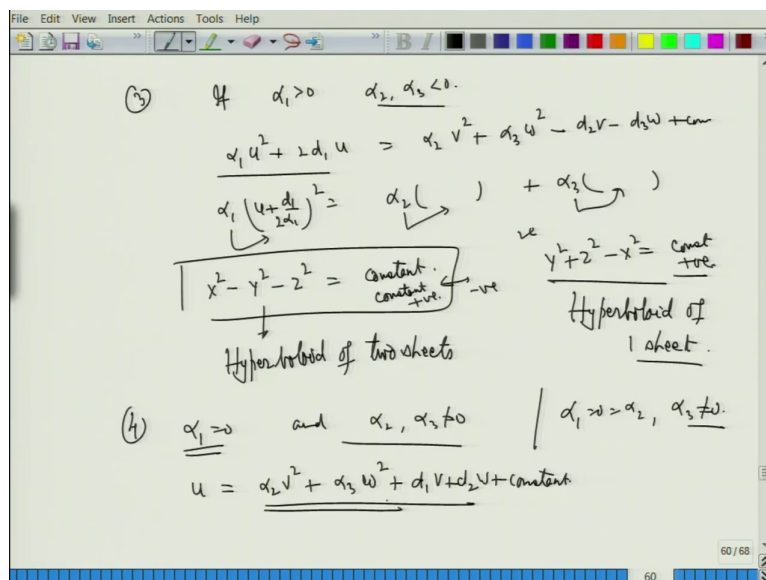 File Edit View Insert Actions Tools Help
③ If α₁>0 α₂, α₃ <0.
α₁u² + 2d₁u = α₂v² + α₃w² - d₂v - d₃w + con
α₁(u + d₁/2α₁)² = α₂( ) + α₃( )
x² - y² - z² = constant.
constant +ve. ← -ve
Hyperboloid of two sheets
y² + z² - x² = const +ve
Hyperboloid of
1 sheet.
④ α₁=0 and α₂, α₃ ≠0 | α₁=0=α₂, α₃ ≠0.
u = α₂v² + α₃w² + d₁v + d₂v + constant
60 / 68
60